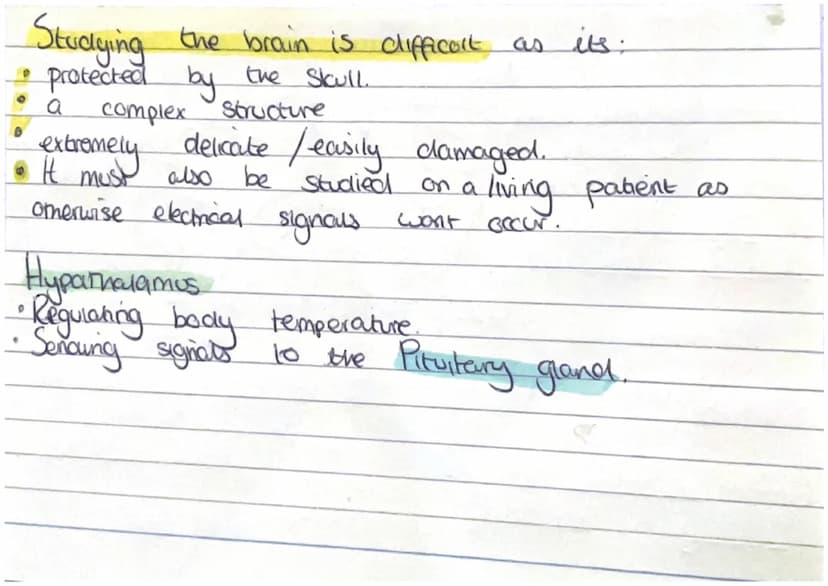 Studying the brain is difficolt as its:
• protected by the skull.
• a complex structure
• extremely delicate / easily damaged.
• It must also be studied on a living patient as
otherwise electrical signals wont occur.
Hypothalamus
• Regulating body temperature.
• Sending signals to the Pituitary gland.